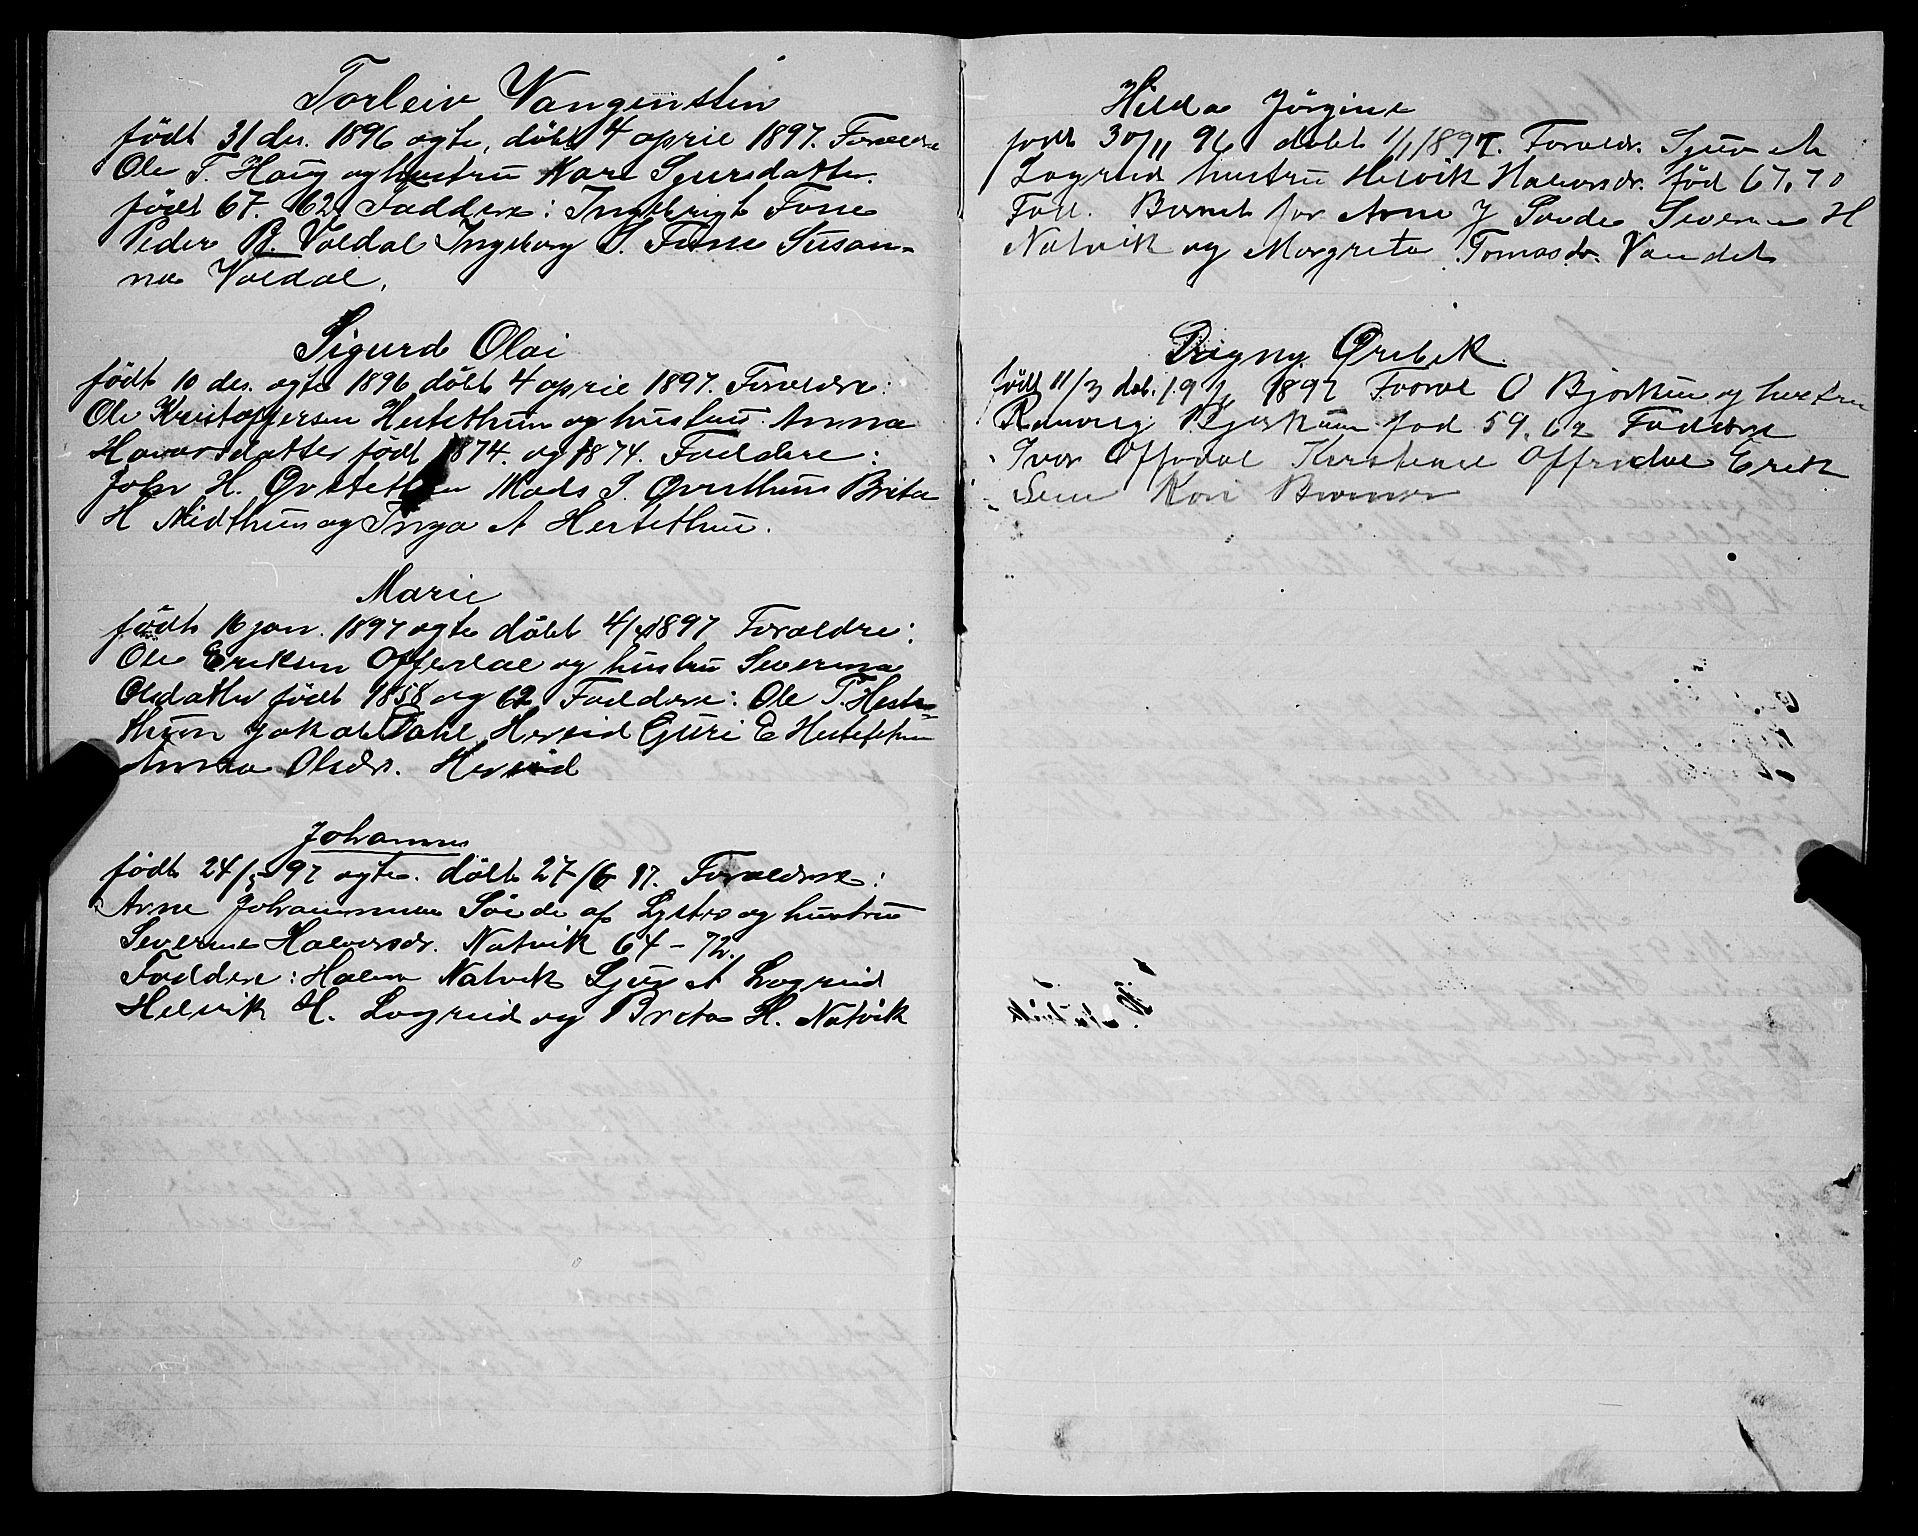 Torleiv Vangensten
født 31 des. 1896 ægte, døbt 4 april 1897. Forældre
Ole T. Haug og hustru Kari Sjursdatter.
født 67. 62. Faddere: Ingebrigt Fone
Peder R. Voldal Ingeborg S. Fone Susan-
na Voldal.
Sigurd Olai
født 10 des. ægte 1896 døbt 4 april 1897. Forældre:
Ole Kristoffersen Hestethun og hustru Anna
Havorsdatter født 1874. og 1874. Faddere:
John H. Mads J. Øvrethun Brita
H Nidthun og Inga A Hestethun.
Marie
født 16 jan. 1897 ægte døbt 4/4 1897 Forældre:
Ole Eriksen Offerdal og hustru Severina
Olsdatter født 1858 og 62 Faddere: Ole T. Heste-
thun Jakob Dahl Hereid Guri E Hestethun
Anna Olsdr. Hereid
Johannes
født 24/5 97 ægte. døbt 27/6 97. Forældre:
Arne Johannessen Søide af Lyster og hustru
Severine Halvorsdr. Natvik 64 - 72.
Faddere: Halvor Natvik Sjur A Lægreid
Helvik H. Lægreid og Brita H. Natvik
Hilda Jørgine
født 30/11 96 døbt 1/1 1897. Foreldr. Sjur A
Lægreid hustru Helvik Halvorsdr. fød 67, 70
Fad. Barnet far Arne J Søide Severine H
Natvik og Margreta Tomasdr. Vandet
Dagny Ørbek
født 11/3 døb. 19/4 1897 O Bjørkum og hustru
Ranveig Bjørkum fød 59. 62 Faddere
Ivar Offerdal Kirstine Offerdal Erik
Sem Kari